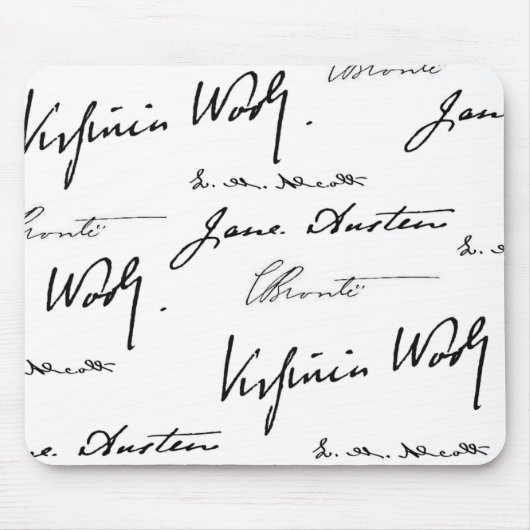 CBrontë
Virginia Woolf.
Jane
L. M. Alcott
Brontë
Jane Austen
L. M.
Woolf.
CBrontë
Virginia Woolf
Alcott
ne Austen
L. M. Alcott